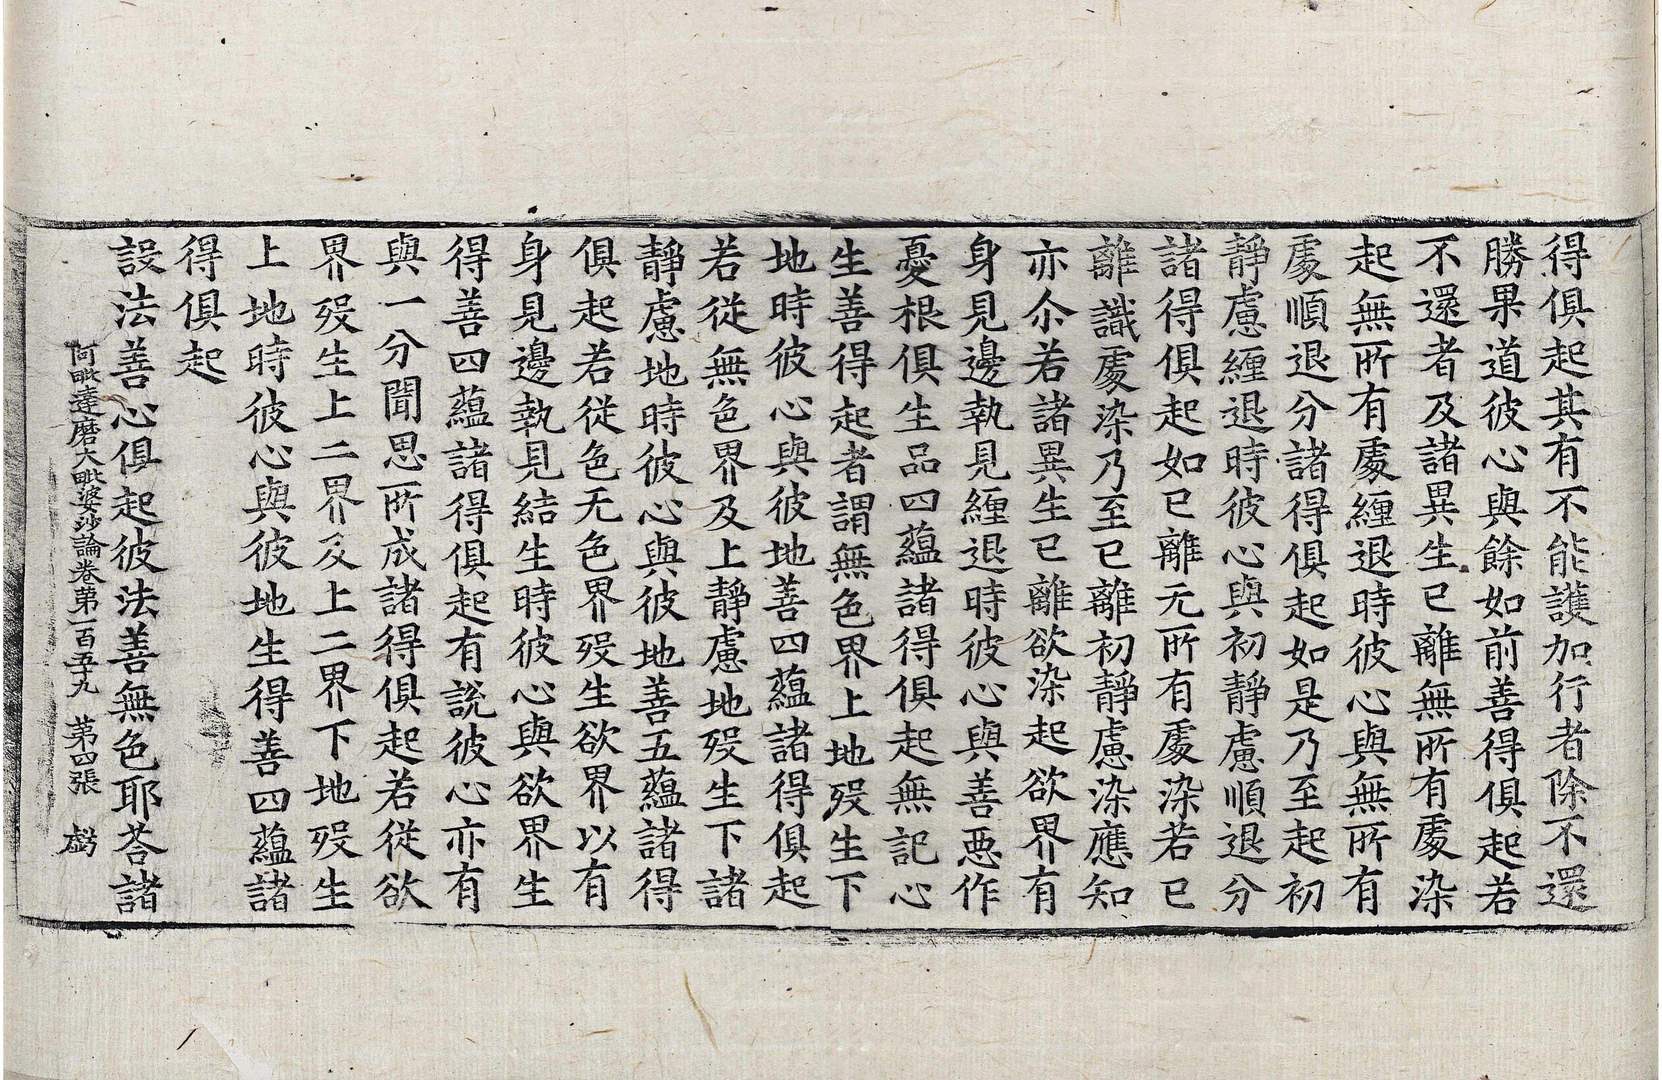 得俱起其有不能護加行者除不還
勝果道彼心與餘如前善得俱起若
不還者及諸異生已離無所有處染
起無所有處纏退時彼心與無所有
處順退分諸得俱起如是乃至起初
靜慮纏退時彼心與初靜慮順退分
諸得俱起如已離无所有處染若已
離識處染乃至已離初靜慮染應知
亦尒若諸異生已離欲染起欲界有
身見邊執見纏退時彼心與善惡作
憂根俱生品四蘊諸得俱起無記心
生善得起者謂無色界上地歿生下
地時彼心與彼地善四蘊諸得俱起
若從無色界及上靜慮地歿生下諸
靜慮地時彼心與彼地善五蘊諸得
俱起若從色无色界歿生欲界以有
身見邊執見結生時彼心與欲界生
得善四蘊諸得俱起有說彼心亦有
與一分聞思所成諸得俱起若從欲
界歿生上二界及上二界下地歿生
上地時彼心與彼地生得善四蘊諸
得俱起
設法善心俱起彼法善無色耶荅諸
阿毗達磨大毗婆沙論卷第一百五十九 第四張